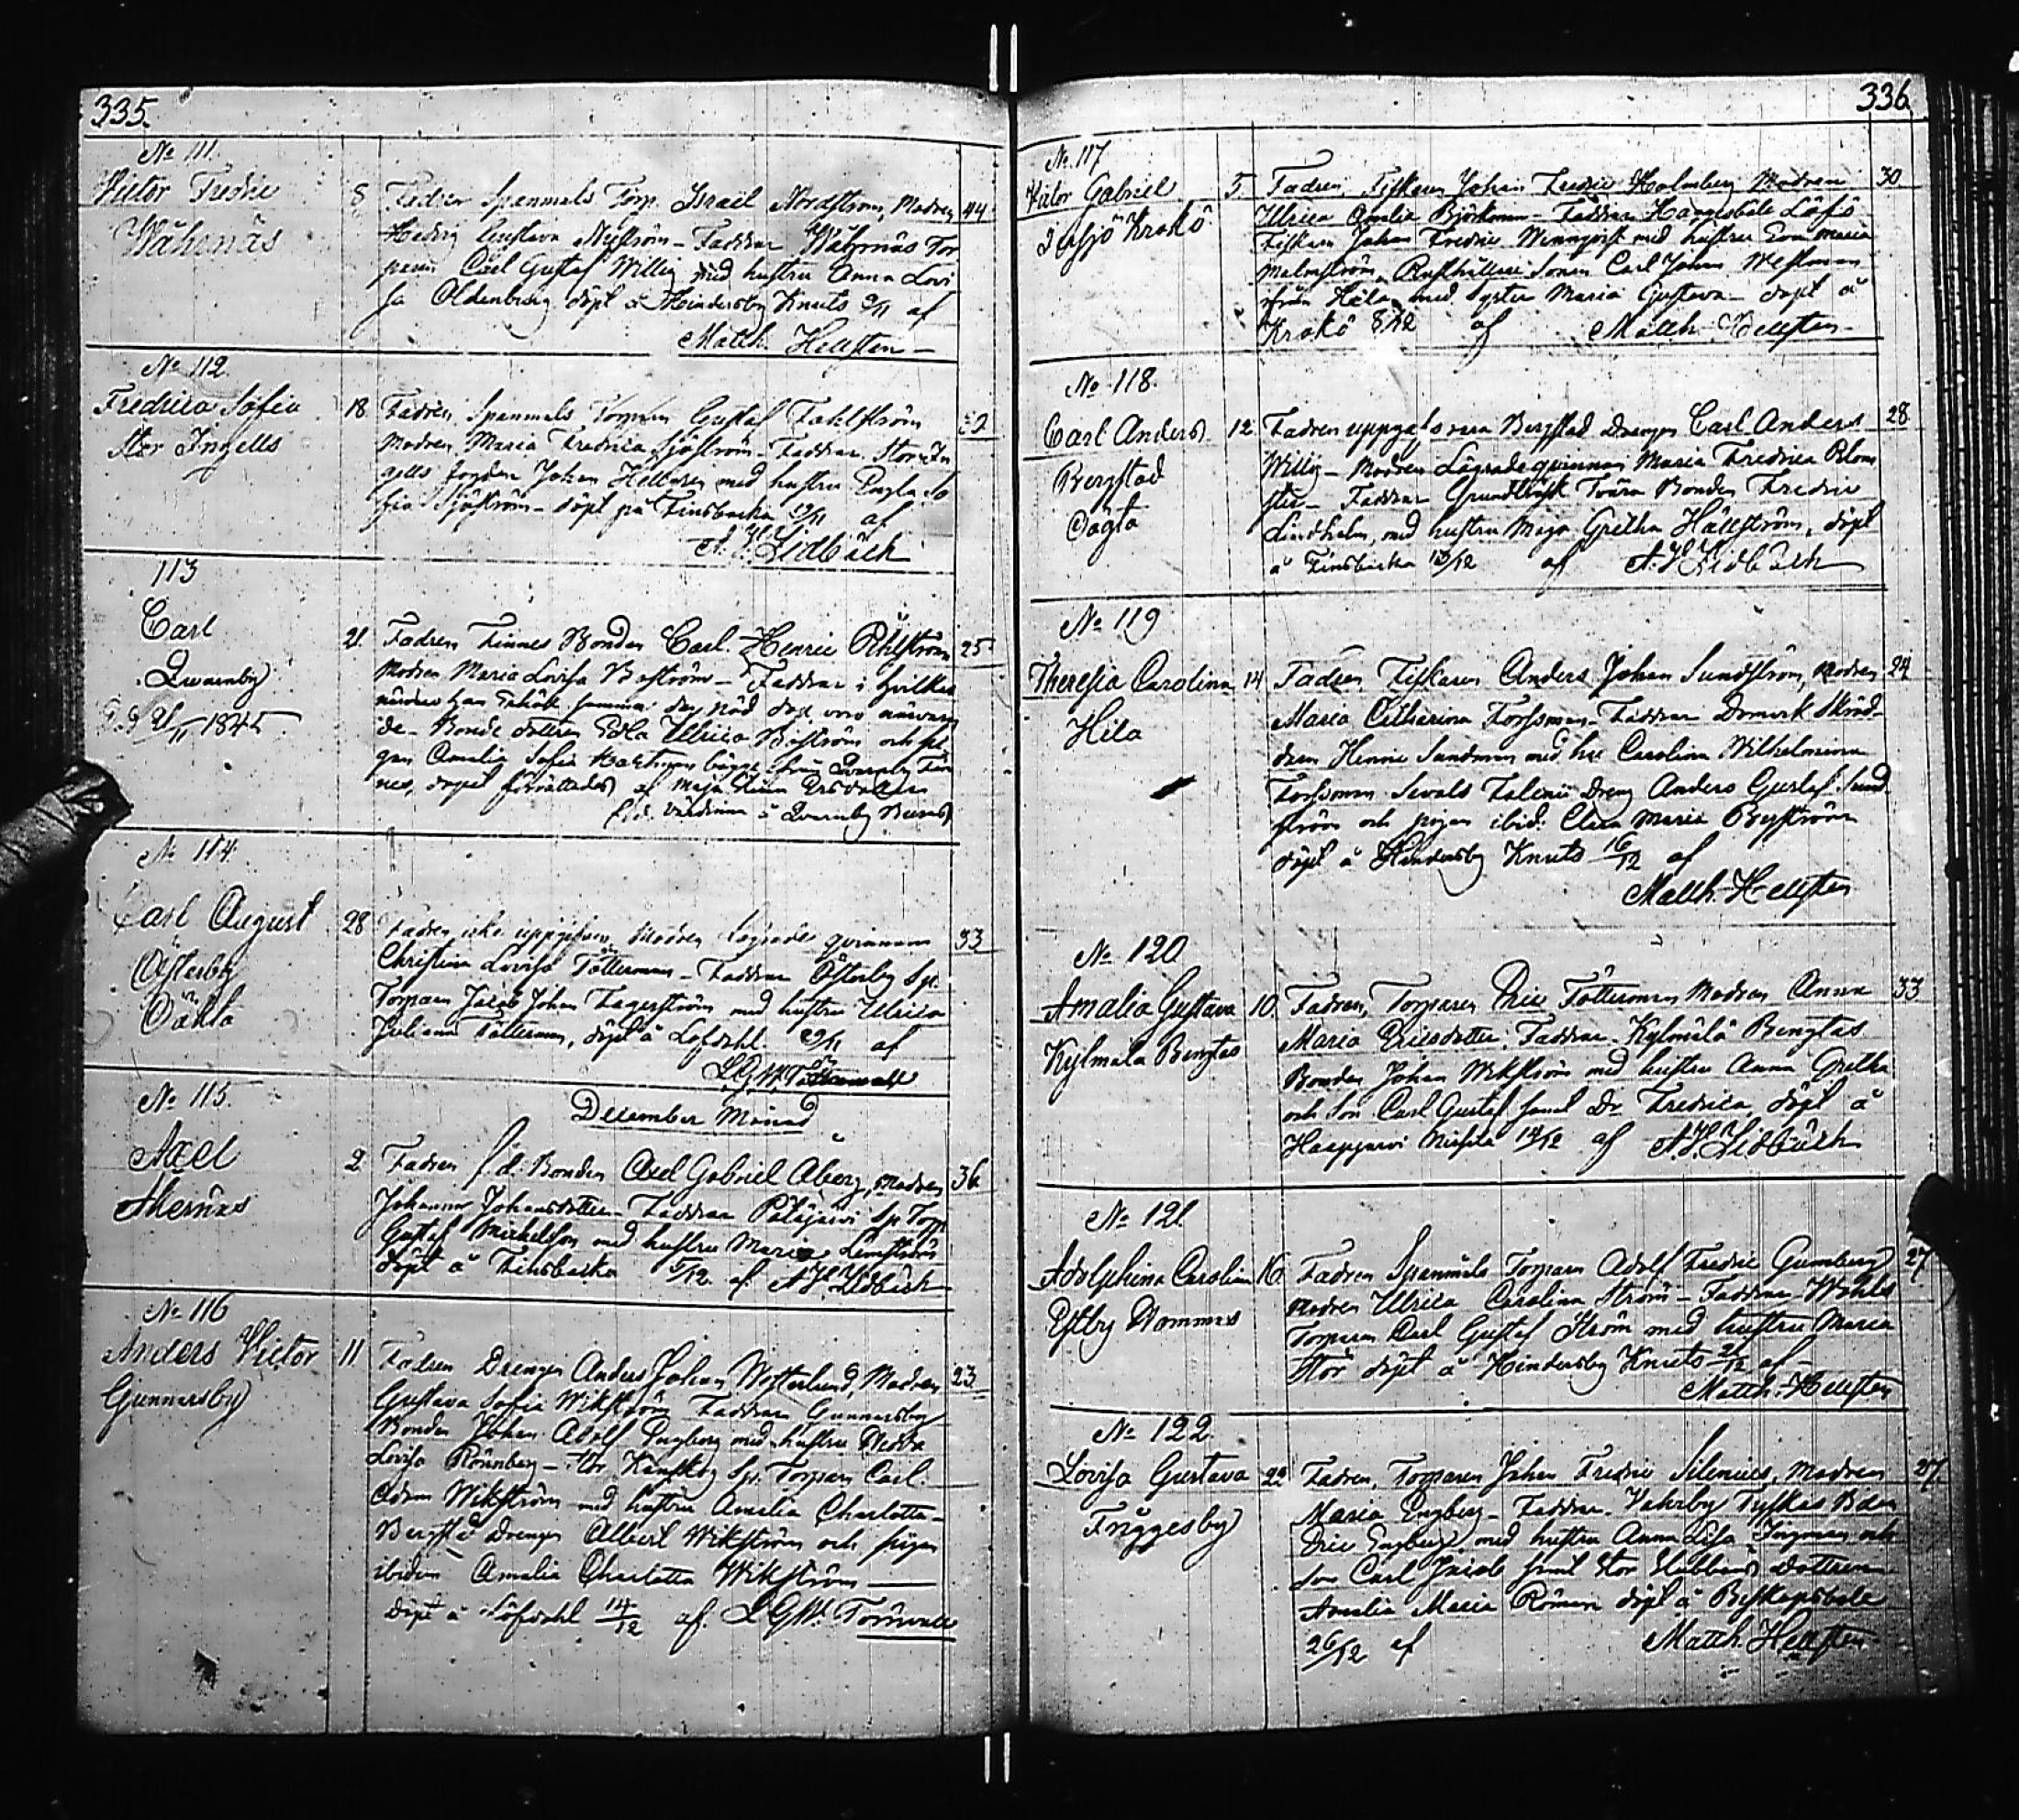 335.
No 111.
Victor Fredric
Wåhrnäs
8 Fadren Spanmåls Torp. Israël Nordström, Modren 44
Hedvig Gustava Nyström - Faddrar Wåhrnäs Tor
paren Carl Gustaf Willig med hustru Anna Lovi
sa Oldenburg döpt å Hindersby Knuts 9/11 af
Matth. Hellsten -
No 112.
Fredrica Sofia
Stor Ingells
18 Fadren, Spanmåls Torparen Gustaf Fahlström
Modren Maria Fredrica Sjöström - Faddrar Stor In
gells fogden Johan Hellberg med hustru Engla So
fia Sjöström - döpt på Finsbacka 19/11 af
A. H. Lidbäck
113
Carl
Qvarnby
21/11 1845
21. Fadren Finnes Bonden Carl Henric Öhlström 25
Modren Maria Lovisa Boström - Faddrar i hvilkas
samma dag nöd dop, voro närvaran
de - Bonde dottren Edla Ullrica Boström och pi
gan Amalia Sofia Hartman bägge från Qvarnby Fin
nes, dopet förrättades af Maja Stina
f.d. Värdinna å Qvarnby
No 114.
Carl August
Österby
28 Fadren icke uppgifven, Modren Lägrade qvinnan 33
Christina Lovisa Tötterman - Faddrar Österby Sp.
Torparen Jacob Johan Fagerström med hustru Ulrica
Juliana Tötterman, döpt å Löfdahl 29/11 af
L.G.W. Törnwall
No 115.
December Månad
Axel
Mernäs
2 Fadren f.d. Bonden Axel Gabriel Åberg, Modren 36
Johanna Johansdotter - Faddrar Pätäjärvi Sp. Torp.
Gustaf Michelsson med hustru Maria Limström
döpt å Finsbacka 5/12 af A. H. Lidbäck
No 116
Anders Victor
Gunnarsby
11 Fadren Drengen Anders Johan Westerlund, Modren 23
Gustava Sofia Wikström Faddrar Gunnarsby
Bonden Johan Adolf Engberg med hustru Hedda
Lovisa Rönnberg - Sp. Torparen Carl
Adam Wikström med hustru Amalia Charlotta -
Bergstad Drengen Albert Wikström och pigan
ibidem Amalia Charlotta Wikström
döpt å Löfdahl 14/12 af L.G.W. Törnwall
336
No. 117
Victor Gabriel
Krokö
5. Fadren, Fiskaren Johan Fredric Holmberg Modren 30
Ulrica Amalia Björkman - Faddrar Löfö
Fiskaren Johan Fredric Wennqvist med hustru Eva Maria
Malmström, Rusthållare Sonen Carl Johan Westman
från Hila med Syster Maria Gustava - döpt å
Krokö 8/12 af Matth. Hellsten -
No 118.
Carl Anders
Bergstad
12 Fadren uppgafs vara Bergstad Drengen Carl Anders 28
Willig - Modren Lägrade qvinnan Maria Fredrica Blom
ster - Faddrar Grundträsk Tvära Bonden Fredric
Lindholm, med hustru Maja Gretha Hällström, döpt
å Finsbacka 13/12 af A. H. Lidbäck
No 119
Theresia Carolina
Hila
14 Fadren Fiskaren Anders Johan Sundström, Modren 24
Maria Catharina Forssman - Faddrar Domvik Skräd-
daren Henric Sundman med hu. Carolina Wilhelmina
Forssman Sevals Dreng Anders Gustaf Sund
ström och pigan ibid: Clara Maria Bergström
döpt å Hindersby Knuts 16/12 af
Matth. Hellsten
No 120
Amalia Gustava
Kylmälä Bengtas
10 Fadren, Torparen Eric Tötterman Modren Anna 33
Maria Ericsdotter; Faddrar Kylmälä Bengtas
Bonden Johan Wikström med hustru Anna Gretha
och Son Carl Gustaf samt Dr Fredrica, döpt å
Haapjärvi 14/12 af A. H. Lidbäck
No 121.
Adolphina Carolina
Estby Nommas
16 Fadren Spanmåls Torparen Adolf Fredric Grunberg 27
Modren Ulrica Carolina Ström - Faddrar Wohls
Torparen Carl Gustaf Ström med hustru Maria
Stor döpt å Hindersby Knuts 21/12 af -
Matth. Hellsten
No 122.
Lovisa Gustava
Friggesby
22 Fadren, Torparen Johan Fredric Silenius, Modren 27
Maria Engberg - Faddrar Vahrby Tyskas Bden
Eric Engberg, med hustru Anna Lisa Ingman och
Son Carl Jacob samt Stor Hubbans Dottren
Amalia Maria Roman döpt å Biskopsböle
26/12 af Matth. Hellsten